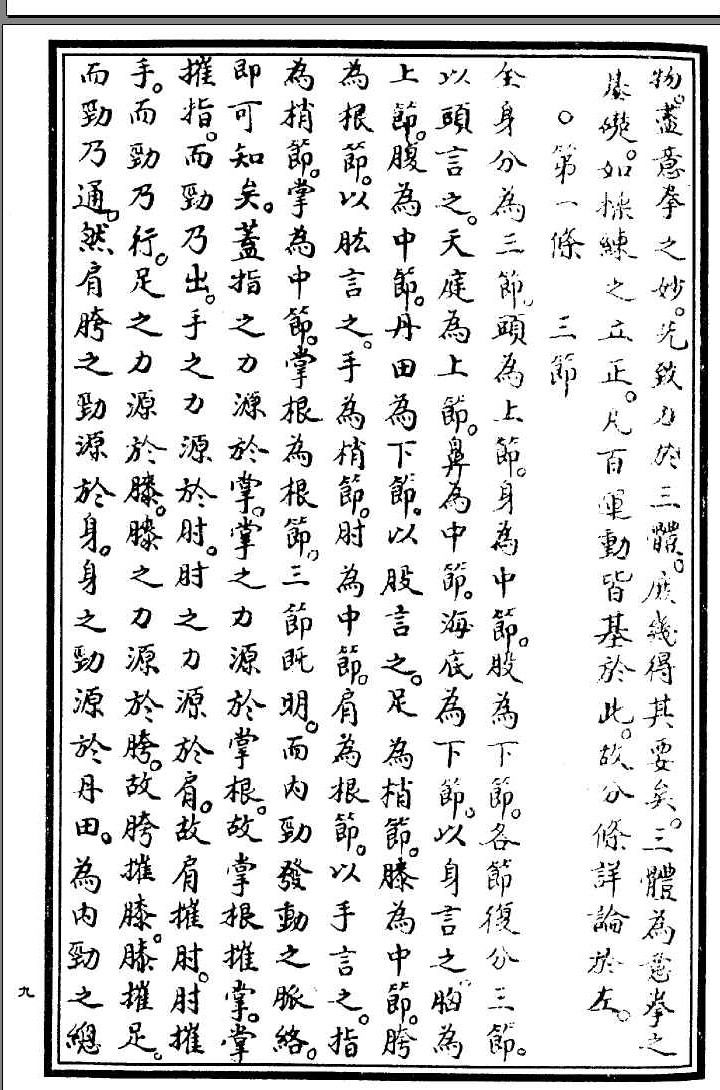 物。盡意拳之妙。先致力於三體。庶幾得其要矣。三體為意拳之
基礎。如操練之立正。凡百運動皆基於此。故分條詳論於左。
○第一條　三節
全身分為三節。頭為上節。身為中節。股為下節。各節復分三節。
以頭言之。天庭為上節。鼻為中節。海底為下節。以身言之。胸為
上節。腹為中節。丹田為下節。以股言之。足為梢節。膝為中節。胯
為根節。以肱言之。手為梢節。肘為中節。肩為根節。以手言之。指
為梢節。掌為中節。掌根為根節。三節既明。而內勁發動之脈絡。
即可知矣。蓋指之力源於掌。掌之力源於掌根。故掌根摧掌。掌
摧指。而勁乃出。手之力源於肘。肘之力源於肩。故肩摧肘。肘摧
手。而勁乃行。足之力源於膝。膝之力源於胯。故胯摧膝。膝摧足。
而勁乃通。然肩胯之勁源於身。身之勁源於丹田。為內勁之總
九